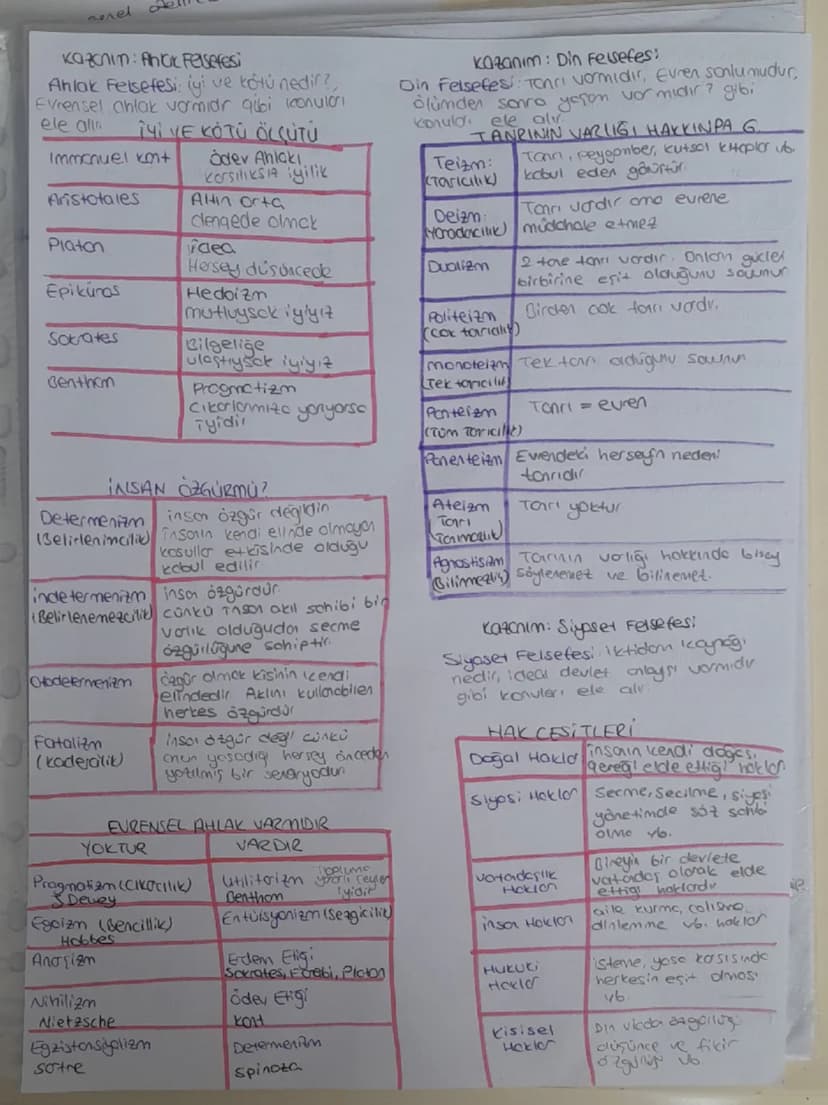 Kazanım: Ahlak Felsefesi
Ahlak Felsefesi: iyi ve kötü nedir?,
Evrensel ahlak varmıdır gibi konuları
ele alır.
İYİ VE KÖTÜ ÖLÇÜTÜ
Immanuel Kant
Ödev Ahlakı
Karşılıksız iyilik
Aristotales
Altın orta
dengede olmak
Platon
idea
Herşey düşüncede
Epiküros
Hedoizm
mutluysak iyiyiz
Sokrates
Bilgeliğe
ulaştıysak iyiyiz
Bentham
Pragmatizm
Çıkarlarımıza yarıyorsa
iyidir
İNSAN ÖZGÜRMÜ?
Determenizm
(Belirlenimcilik)
insan özgür değildir
insanın kendi elinde olmayan
koşullar etkisinde olduğu
kabul edilir.
indetermenizm
(Belirlenemezcilik)
insan özgürdür.
çünkü insan akıl sahibi bir
varlık olduğudan seçme
özgürlüğüne sahiptir.
Otodetermenizm
özgür olmak kişinin kendi
elindedir. Aklını kullanabilen
herkes özgürdür
Fatalizm
(Kadercilik)
insan özgür değil çünkü
onun yaşadığı herşey önceden
yazılmış bir senaryodur.
EVRENSEL AHLAK VARMIDIR
YOKTUR
VARDIR
Pragmatizm (Çıkarcılık)
J Dewey
Utilitarizm
Bentham
topluma
yararlı şeyler
iyidir
Egoizm (Bencillik)
Hobbes
Entüisyonizm (Sezgicilik)
Anarşizm
Erdem Etiği
Sokrates, Farabi, Platon
Nihilizm
Nietzsche
Ödev Etiği
Kant
Egzistansiyalizm
Sartre
Determenizm
Spinoza
Kazanım: Din Felsefesi
Din Felsefesi: Tanrı varmıdır, Evren sonlumudur,
ölümden sonra yaşam varmıdır? gibi
konuları ele alır
TANRININ VARLIĞI HAKKINDA G.
Teizm:
(Tarıcılık)
Tanrı, peygamber, kutsal kitaplar vb.
kabul eden görüştür.
Deizm:
(Yaradacılık)
Tanrı vardır ama evrene
müdahale etmez
Dualizm
2 tane tanrı vardır. Onların güçleri
birbirine eşit olduğunu savunur
Politeizm
(çok tarıcılık)
Birden çok tanrı vardır.
monoteizm
(Tek tarıcılık)
Tek tanrı olduğunu savunur
Panteizm
(Tüm Tarıcılık)
Tanrı = evren
Panenteizm
Evrendeki herşeyin nedeni
tanrıdır
Ateizm
(Tanrı
Tanımazlık)
Tanrı yoktur
Agnostisizm
(Bilinmezlik)
Tanrının varlığı hakkında bişey
söylenemez ve bilinemez.
Kazanım: Siyaset Felsefesi
Siyaset Felsefesi: iktidarın kaynağı
nedir, ideal devlet anlayışı varmıdır
gibi konuları ele alır.
HAK ÇEŞİTLERİ
Doğal Haklar
insanın kendi doğası
gereği elde ettiği haklar
Siyasi Haklar
Seçme, seçilme, siyasi
yönetimde söz sahibi
olma vb.
Vatadaşlık
Hakları
Bireyin bir devlete
vatadaş olarak elde
ettiği haklardır
insan Hakları
aile kurma, çalışma,
dinlenme vb. haklar
Hukuki
Haklar
isteme, yasa karşısında
herkesin eşit olması
vb.
Kişisel
Haklar
Din vicda özgürlüğü
düşünce ve fikir
özgürlüğü vb